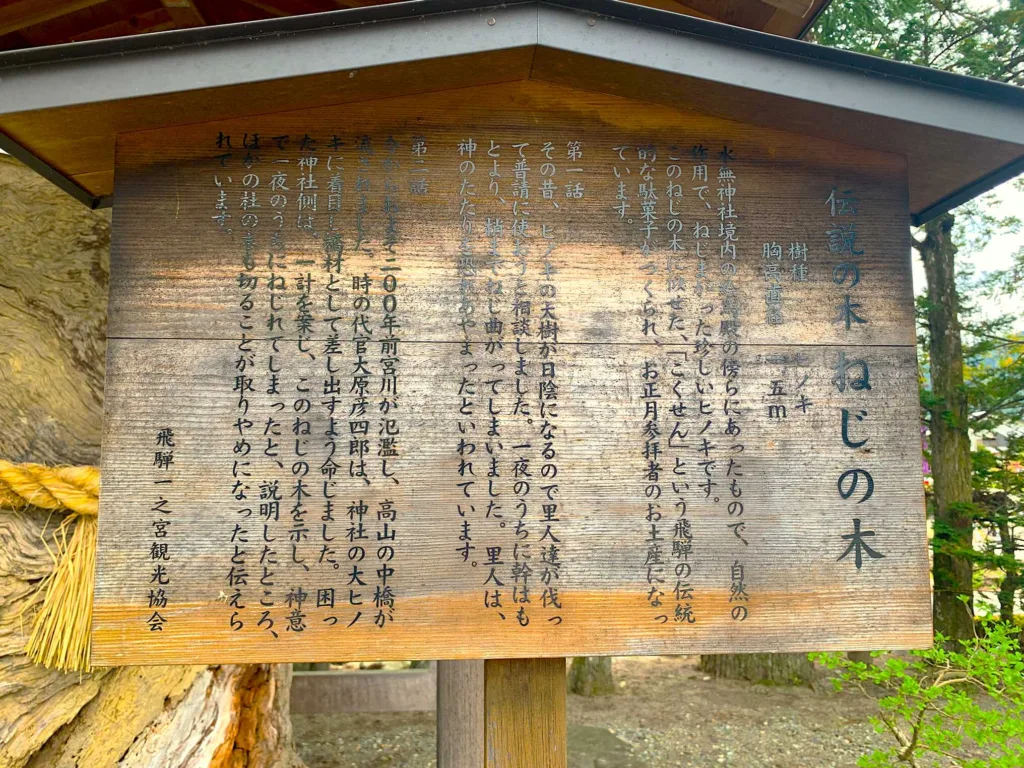 伝説の木 ねじの木
樹種 ヒノキ
胸高直径 五m
水無神社境内の絵馬殿の傍らにあったもので、自然の
作用で、ねじまがった珍しいヒノキです。
このねじの木に似せた、「こくせん」という飛騨の伝統
的な駄菓子がつくられ、お正月参拝者のお土産になっ
ています。
第一話
その昔、ヒノキの大樹が日陰になるので里人達が伐っ
て普請に使おうと相談しました。一夜のうちに幹はも
とより、梢までねじ曲がってしまいました。里人は、
神のたたりを恐れあやまったといわれています。
第二話
二〇〇年前宮川が氾濫し、高山の中橋が
ました。時の代官大原彦四郎は、神社の大ヒノ
キに着目し、橋材として差し出すよう命じました。困っ
た神社側は、一計を案じ、このねじの木を示し、神意
で一夜のうちにねじれてしまったと、説明したところ、
ほかの社の木も切ることが取りやめになったと伝えら
れています。
飛騨一之宮観光協会